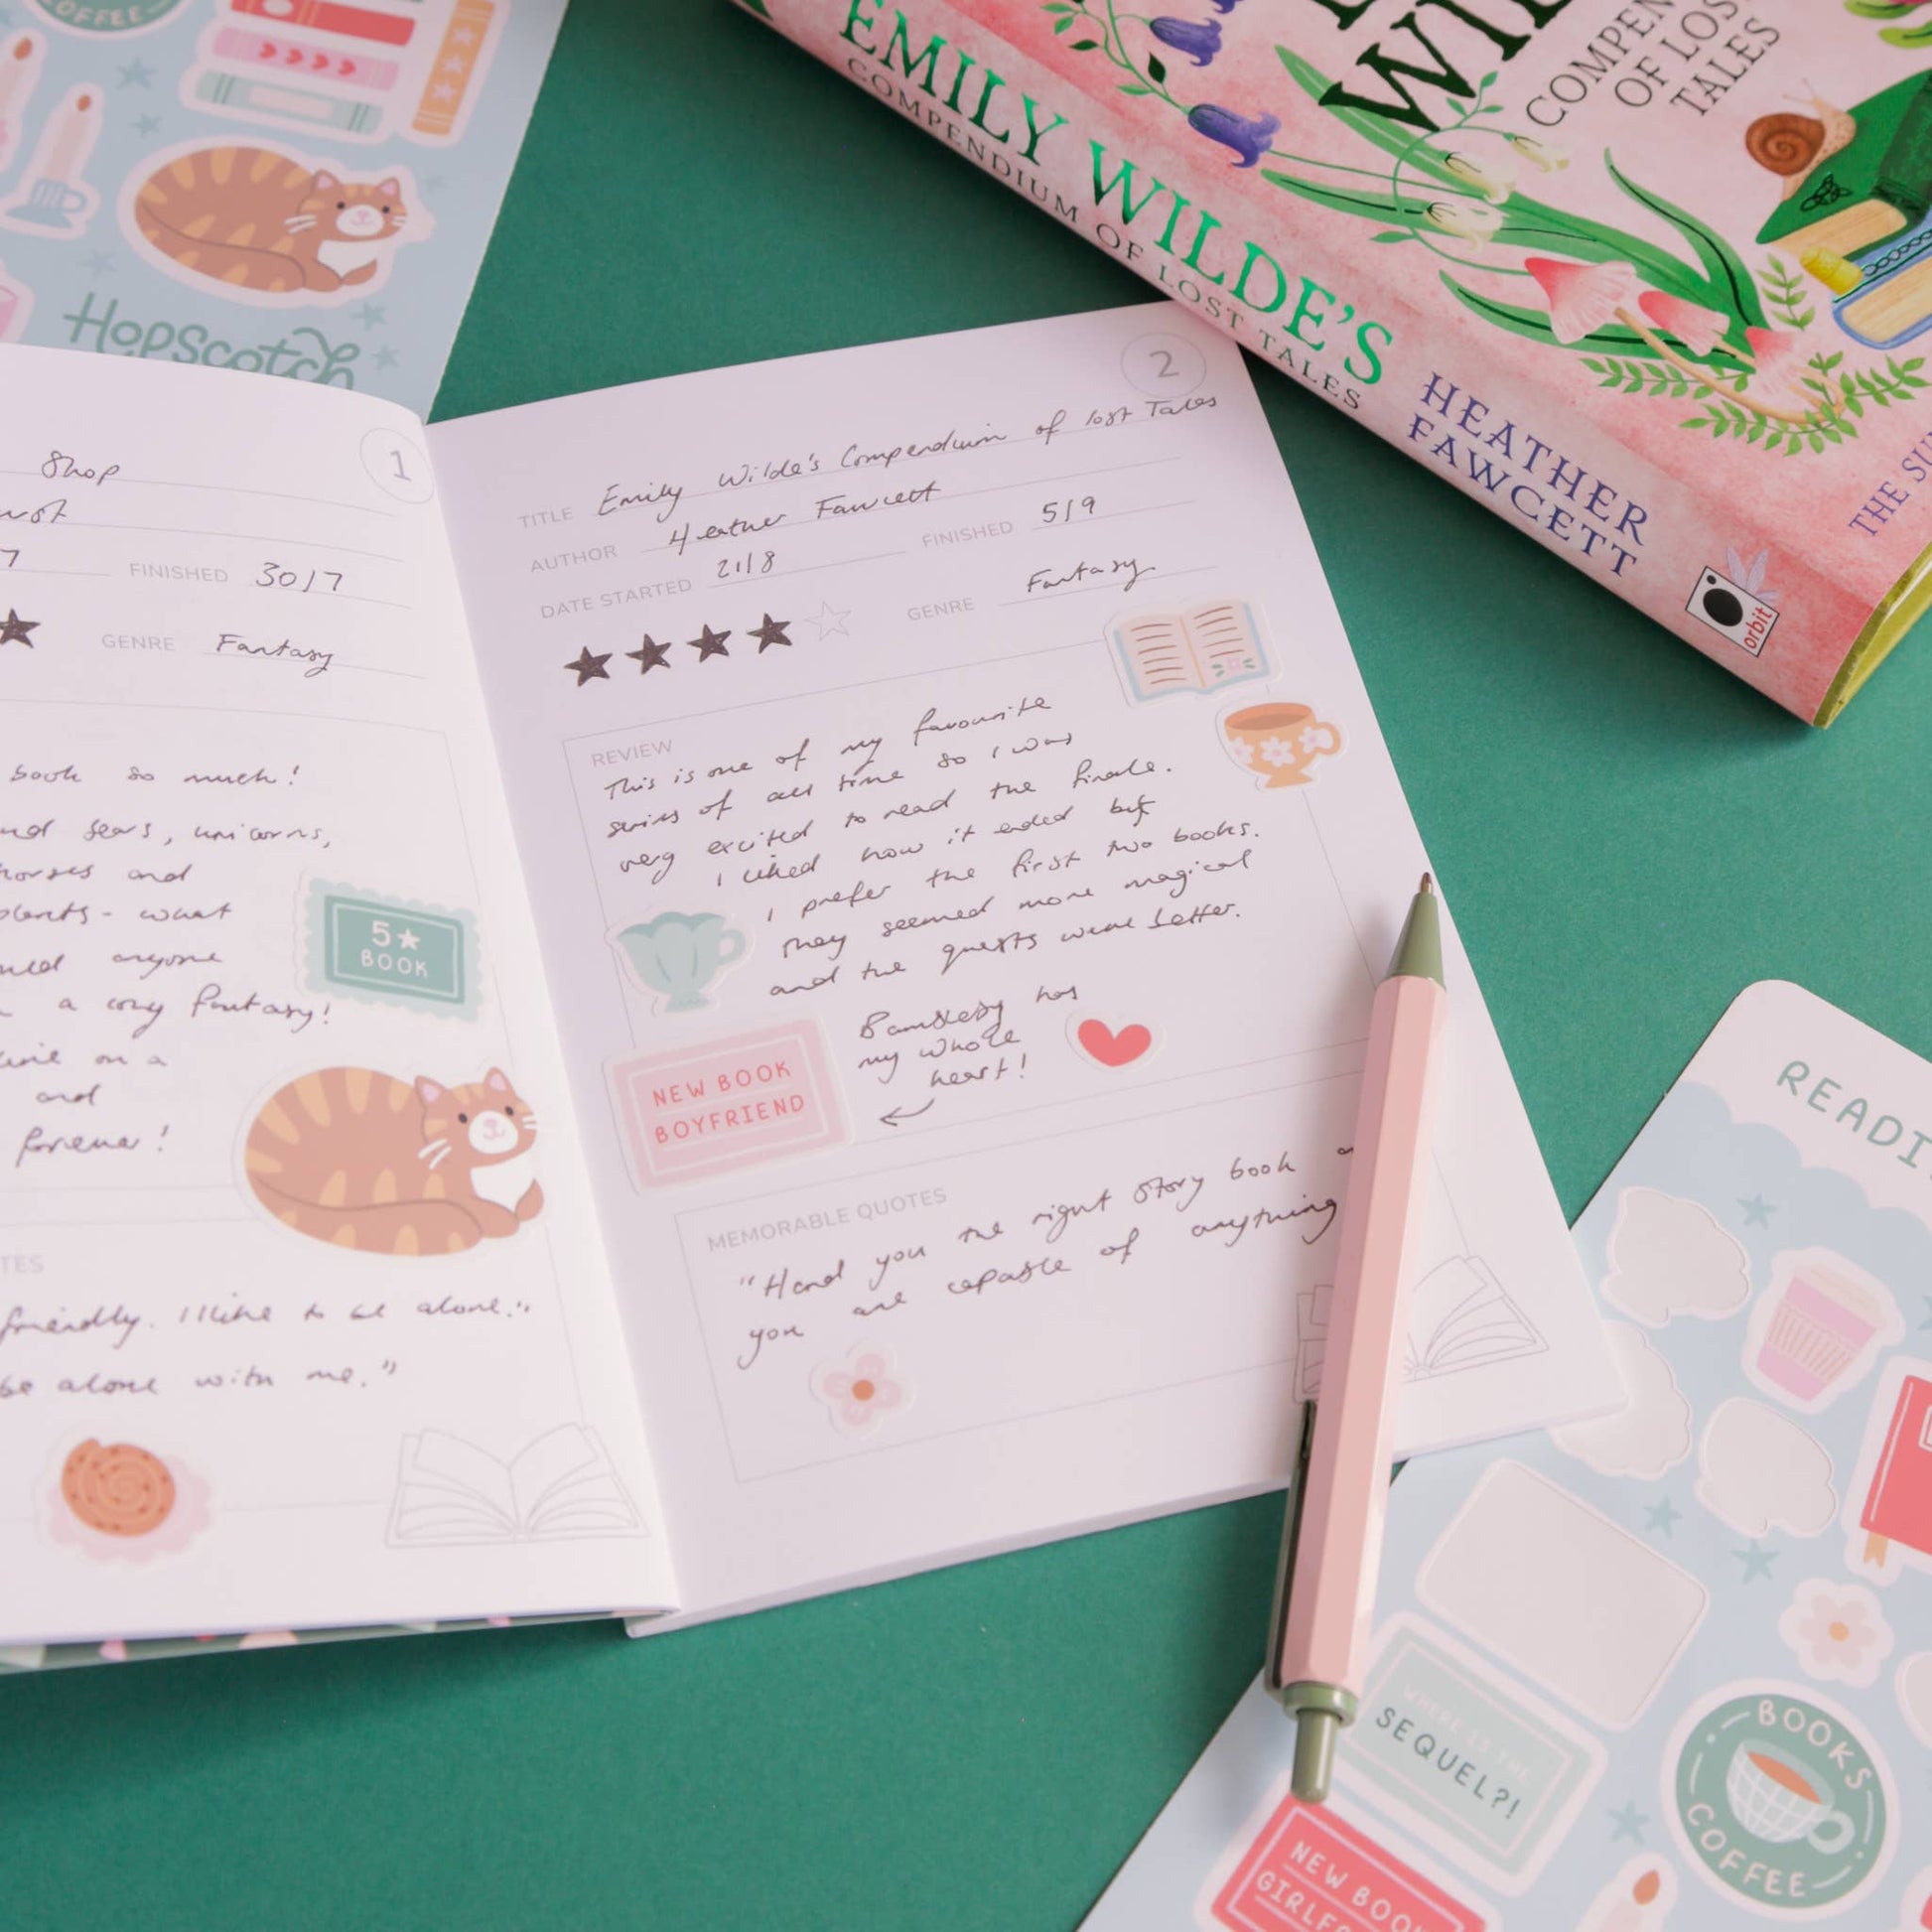 COFFEE
HOPSCOTCH
EMILY WILDE'S
COMPENDIUM OF LOST TALES
HEATHER
FAWCETT
orbit
OF LOST
TALES
1
Shop
7
FINISHED 30/7
GENRE Fantasy
book so much!
unicorns,
horses and
plants - what
anyone
a cosy fantasy!
on a
and
forever!
5★
BOOK
friendly. I like to be alone."
be alone with me."
2
TITLE Emily Wilde's Compendium of lost Tales
AUTHOR Heather Fawcett
DATE STARTED 21/8 FINISHED 5/9
GENRE Fantasy
REVIEW
This is one of my favourite
series of all time so I was
very excited to read the finale.
I liked how it ended but
I prefer the first two books.
They seemed more magical
and the quests were better.
Bambleby has
my whole
heart!
NEW BOOK
BOYFRIEND
MEMORABLE QUOTES
"Hand you the right story book
you are capable of anything
READI
WHERE IS THE
SEQUEL?!
BOOKS
COFFEE
NEW BOOK